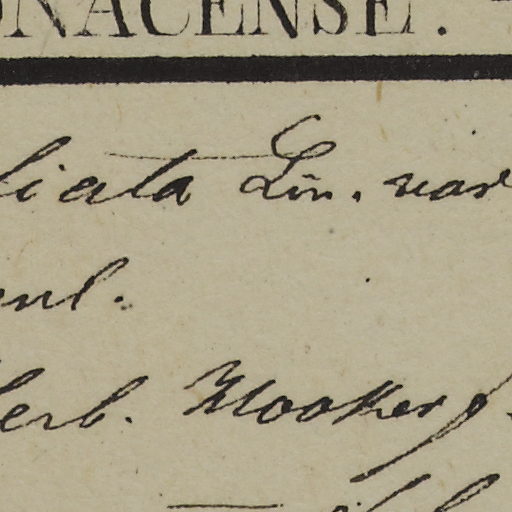 ONACENSE.
liata Lin. var
enl.
Herb. Hooker f.